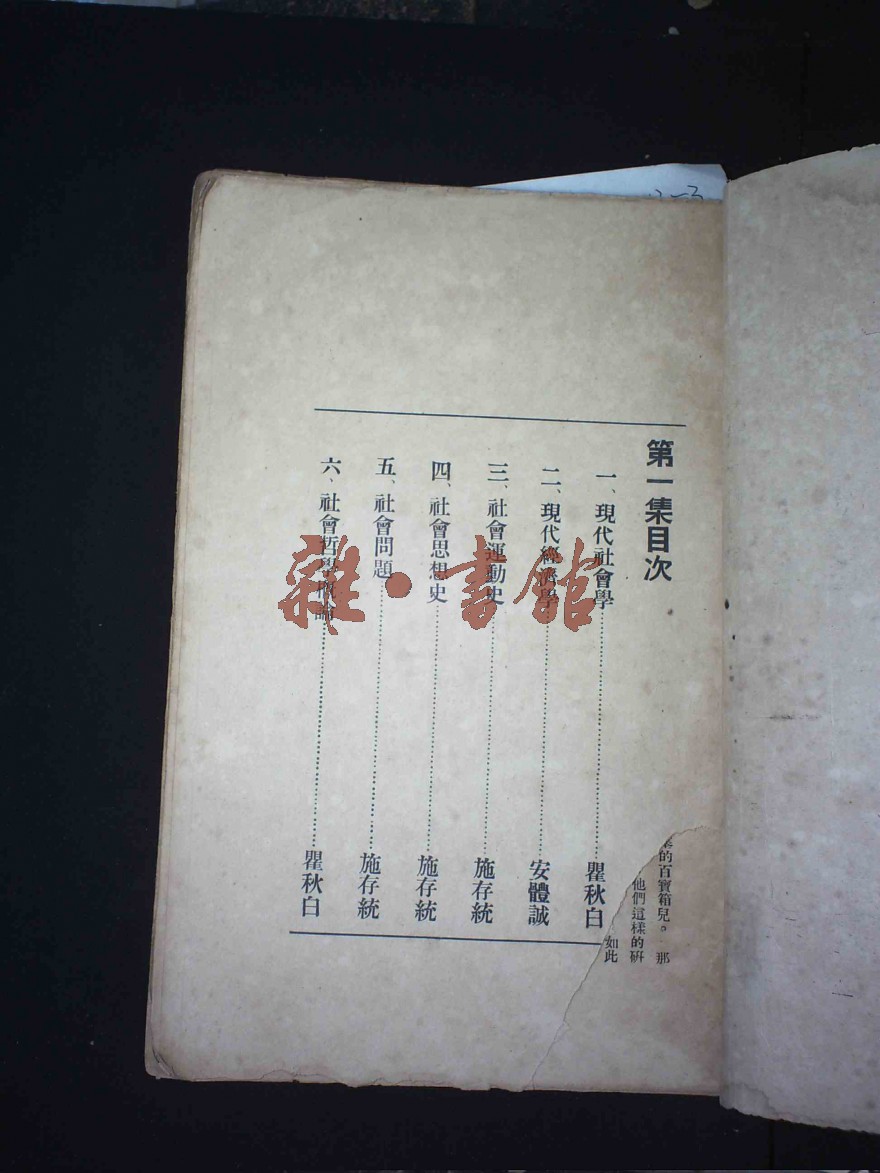 第一集目次
一、現代社會學……瞿秋白
二、現代經濟學……安體誠
三、社會運動史……施存統
四、社會思想史……施存統
五、社會問題……施存統
六、社會哲學概論……瞿秋白
的百寶箱兒。那
他們這樣的研
如此
雜·書館